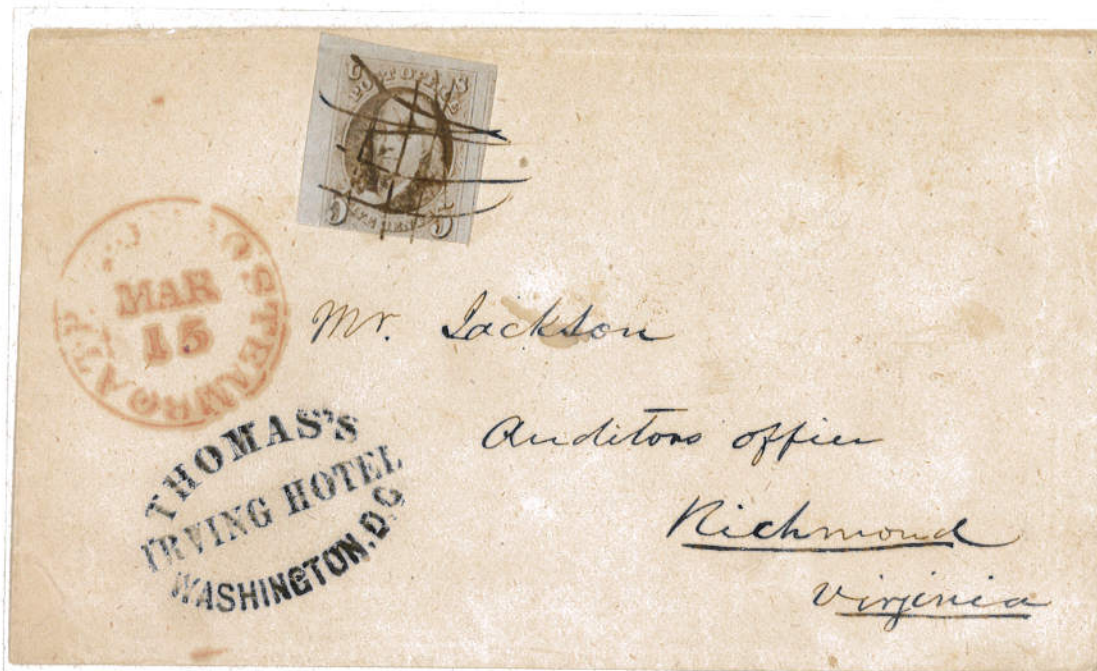 POST OFFICE
FIVE CENTS
5
STEAMBOAT
MAR
15
Mr. Jackson
Auditors office
Richmond
Virginia
THOMAS'S
IRVING HOTEL
WASHINGTON, D.C